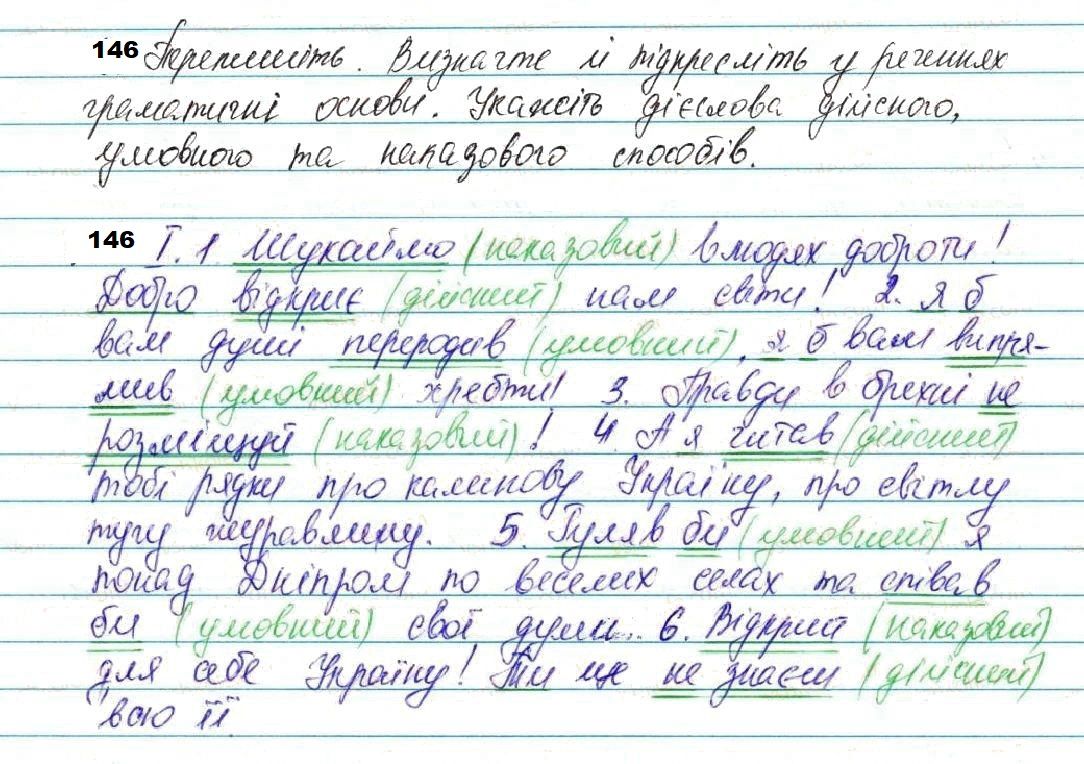 146 Перепишіть. Визначте й підкресліть у реченнях
граматичні основи. Укажіть дієслова дійсного,
умовного та наказового способів.
146 І. 1 Шукаймо (наказовий) в людях доброти!
Добро відкриє (дійсний) нам світи! 2. Я б
вам душі переродив (умовний), я б вам випря-
мив (умовний) хребти! 3. Правди в брехні не
розмішуй (наказовий)! 4. А я читав (дійсний)
тобі рядки про калинову Україну, про світлу
тугу журавлину. 5. Гуляв би (умовний) я
понад Дніпром по веселих селах та співав
би (умовний) свої думи... 6. Відкрий (наказовий)
для себе Україну! Ти ще не знаєш (дійсний)
всю її